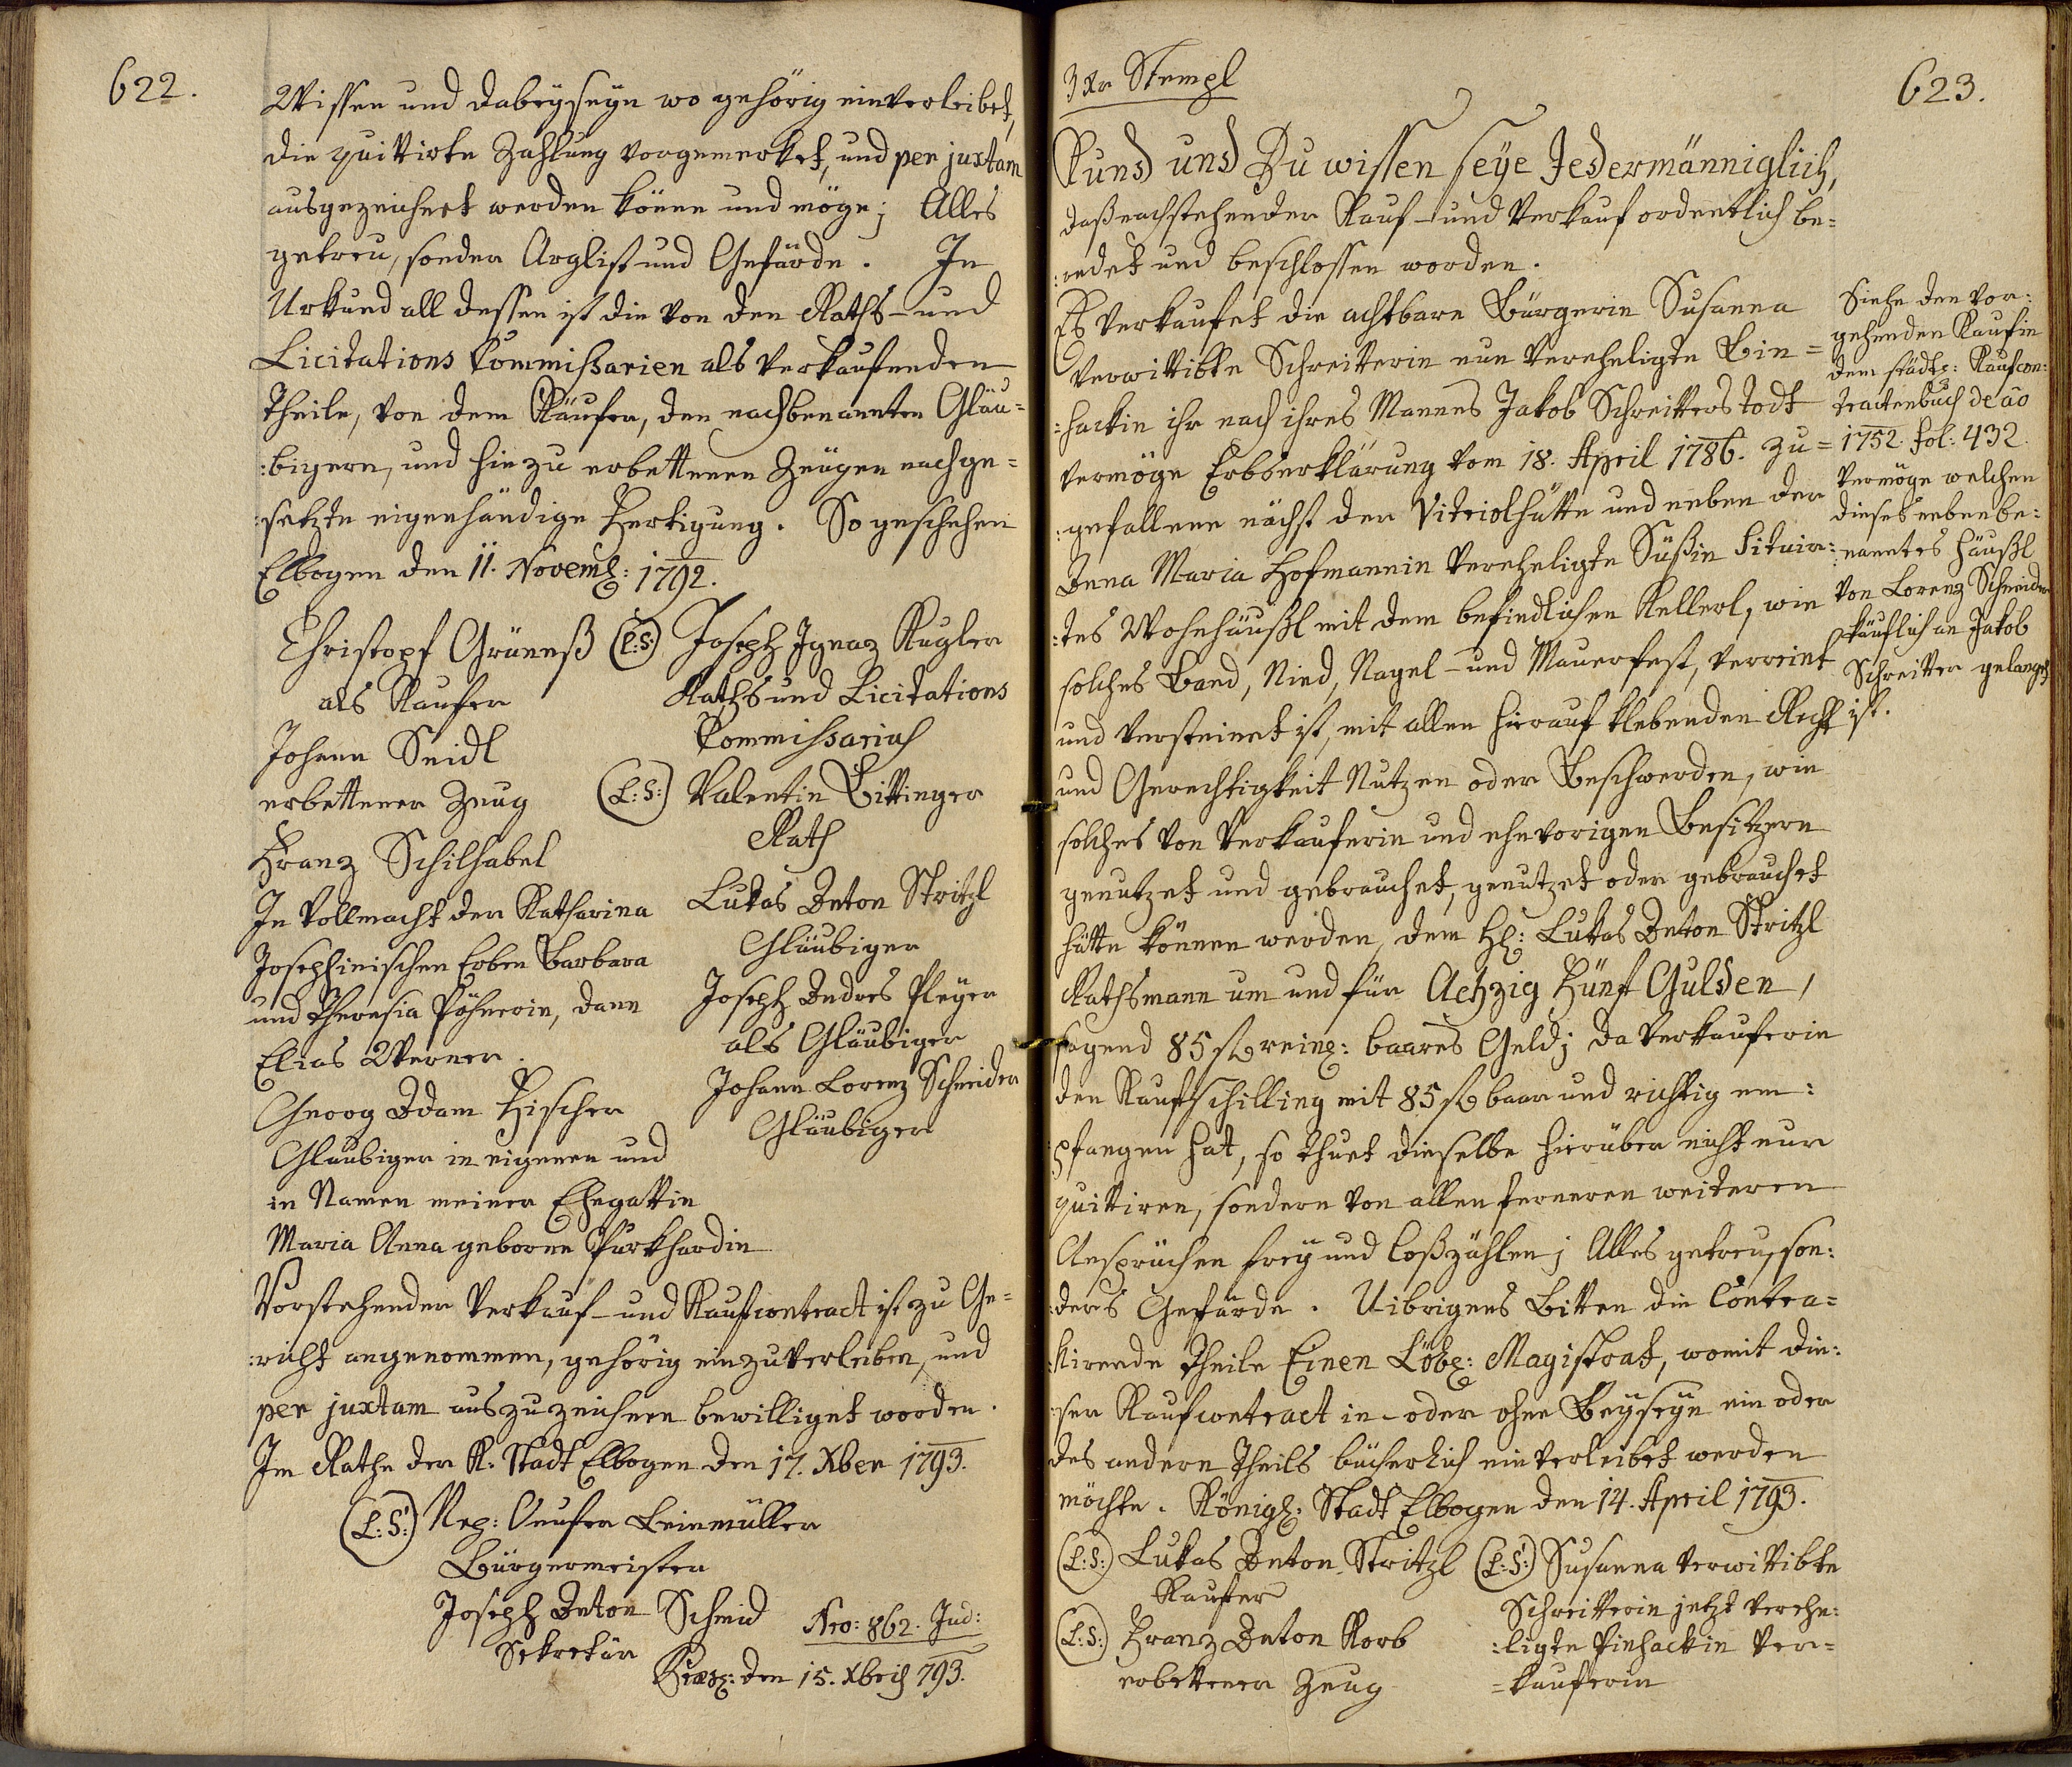 622.
Wissen und dabeyseyn wo gehörig einverleibet,
die quittirte Zahlung vorgemerket, und per juxtam
ausgezeichnet werden könne und möge; Alles
getreu, sonder Arglist und Gefärde. In
Urkund all dessen ist die von den Raths- und
Licitations Commissarien als verkaufenden
Theile, von dem Käufer, den nachbenannten Gläu=
:bigern, und hiezu erbettenen Zeugen nachge=
:setzte eigenhändige Fertigung. So geschehen
Elbogen den 11. Novemb: 1792.
Christoph Grüneß (L:S:)
als Kaufer
Johann Seidl
erbettener Zeug
Franz Schilhabel
In Vollmacht der Katharina
Josephinischen Erben Barbara
und Theresia Pöhnerin, dann
Elias Werner.
Georg Adam Fischer
Glaubiger in eigenen und
in Namen meiner Ehegattin
Maria Anna geborne Purkhardin
Joseph Ignaz Kugler
Raths und Licitations
Commissarius
(L:S:) Valentin Bittinger
Rath
Lukas Anton Stritzl
Gläubiger
Joseph Andres Pleyer
als Gläubiger
Johann Lorenz Schneider
Gläubiger
Vorstehender Verkauf- und Kaufcontract ist zu Ge=
:richt angenommen, gehörig einzuverleiben, und
per juxtam auszuzeichnen bewilliget worden.
Im Rathe der K. Stadt Elbogen den 17. Xber 1793.
(L:S:) Leinmüller
Bürgermeister
Joseph Anton Schmid
Sekretär
Nro: 862. Jud:
den 15. Xbris 793.
3 Xr Stempl
623.
Kund und Zu wissen seye Jedermänniglich,
daß nachstehender Kauf- und Verkauf ordentlich be=
:redet und beschlossen worden.
Es verkaufet die achtbare Bürgerin Susanna
verwittibte Schreitterin nun verehligte Bin=
:hackin ihr nach ihres Mannes Jakob Schreitters Todt
vermöge Erbserklärung vom 18. April 1786. zu=
:gefallene nächst der Vitriolhütte und neben der
Anna Maria Hofmannin verehligte Süßin situir:
:tes Wohnhäußl mit dem befindlichen Kellerl, wie
solches Band, Nied, Nagel- und Mauerfest, verreint
und versteinet ist, mit allen hierauf klebenden Recht
und Gerechtigkeit Nutzen oder Beschwerden, wie
solches von Verkauferin und ehevorigen Besitzern
genutzet und gebrauchet, genutzet oder gebrauchet
hätte können werden, dem H: Lukas Anton Stritzl
Rathsmann um und für Achzig Fünf Gulden,
sagend 85 f rein: baares Geld; da Verkauferin
den Kaufschilling mit 85 f baar und richtig em:
:pfangen hat, so thuet dieselbe hierüber nicht nur
quittiren, sondern von allen ferneren weiteren
Ansprüchen frey und loßzählen; Alles getreu, son:
:ders Gefärde. Uibrigens Bitten die Contra=
:hirende Theile Einen Löbl: Magistrat, womit die:
:ser Kaufcontract in- oder ohne Beyseyn ein oder
des andern Theils bücherlich einverleibet werden
möchte. Königl: Stadt Elbogen den 14. April 1793.
(L:S:) Lukas Anton Stritzl
Kaufer
(L:S:) Franz Anton Korb
erbettener Zeug
(L:S:) Susanna verwittibte
Schreitterin jetzt verehe:
:ligte Pinhackin Ver=
=kauferin
Siehe den vor:
gehenden Kauf in
dem städt: Kaufcon:
tractenbuch de ao
1752. fol: 432.
vermöge welchen
dieses nebenbe:
:nanntes Häußl
von Lorenz Schneider
käuflich an Jakob
Schreitter gelanget
ist.